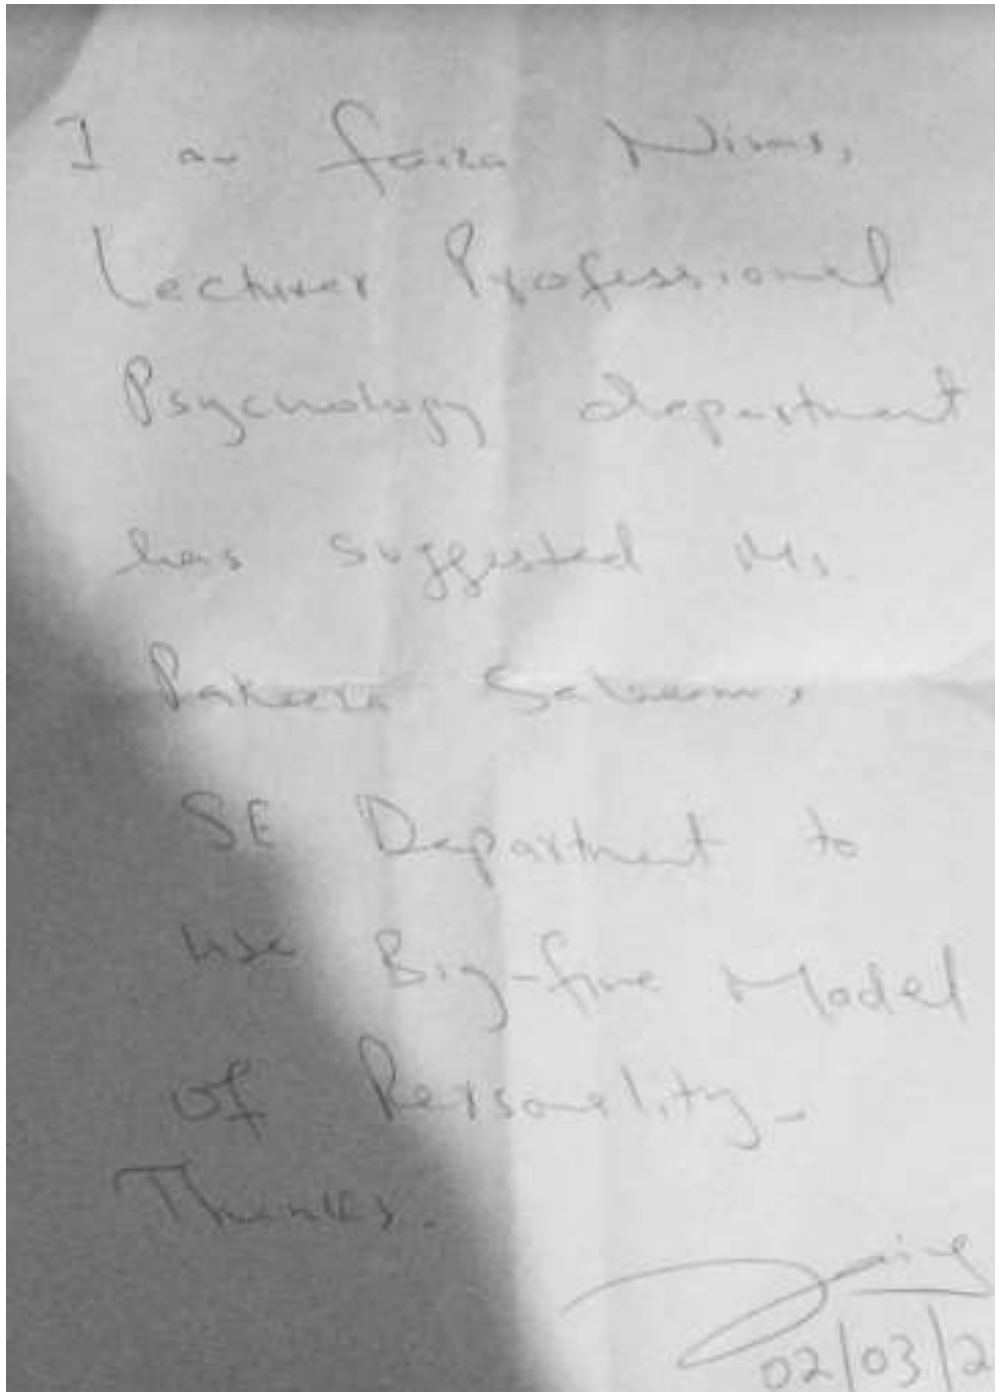 I am Faiza
Lecturer Professional
Psychology department
has suggested Ms.
Pakeeza Saleem,
SE Department to
use Big-five Model
of Personality.
Thanks.
02/03/2